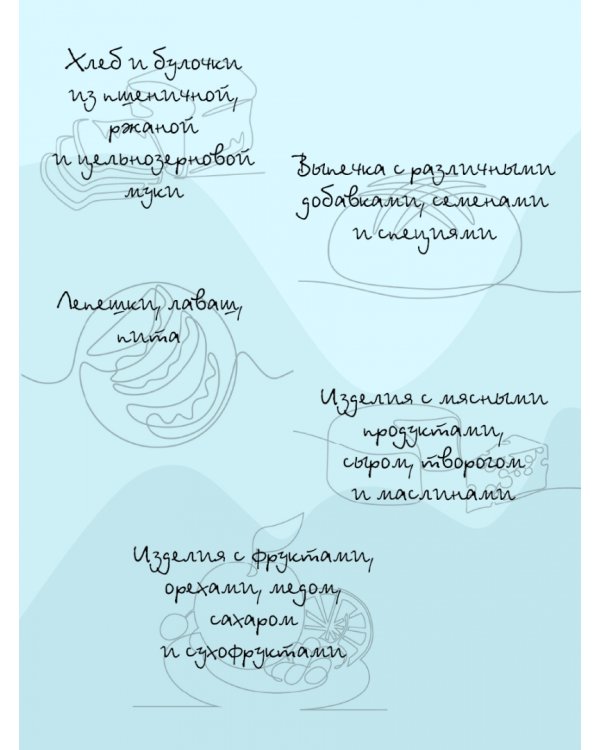 Хлеб и булочки
из пшеничной,
ржаной
и цельнозерновой
муки
Выпечка с различными
добавками, семенами
и специями
Лепешки, лаваш,
пита
Изделия с мясными
продуктами,
сыром, творогом
и маслинами
Изделия с фруктами,
орехами, медом,
сахаром
и сухофруктами